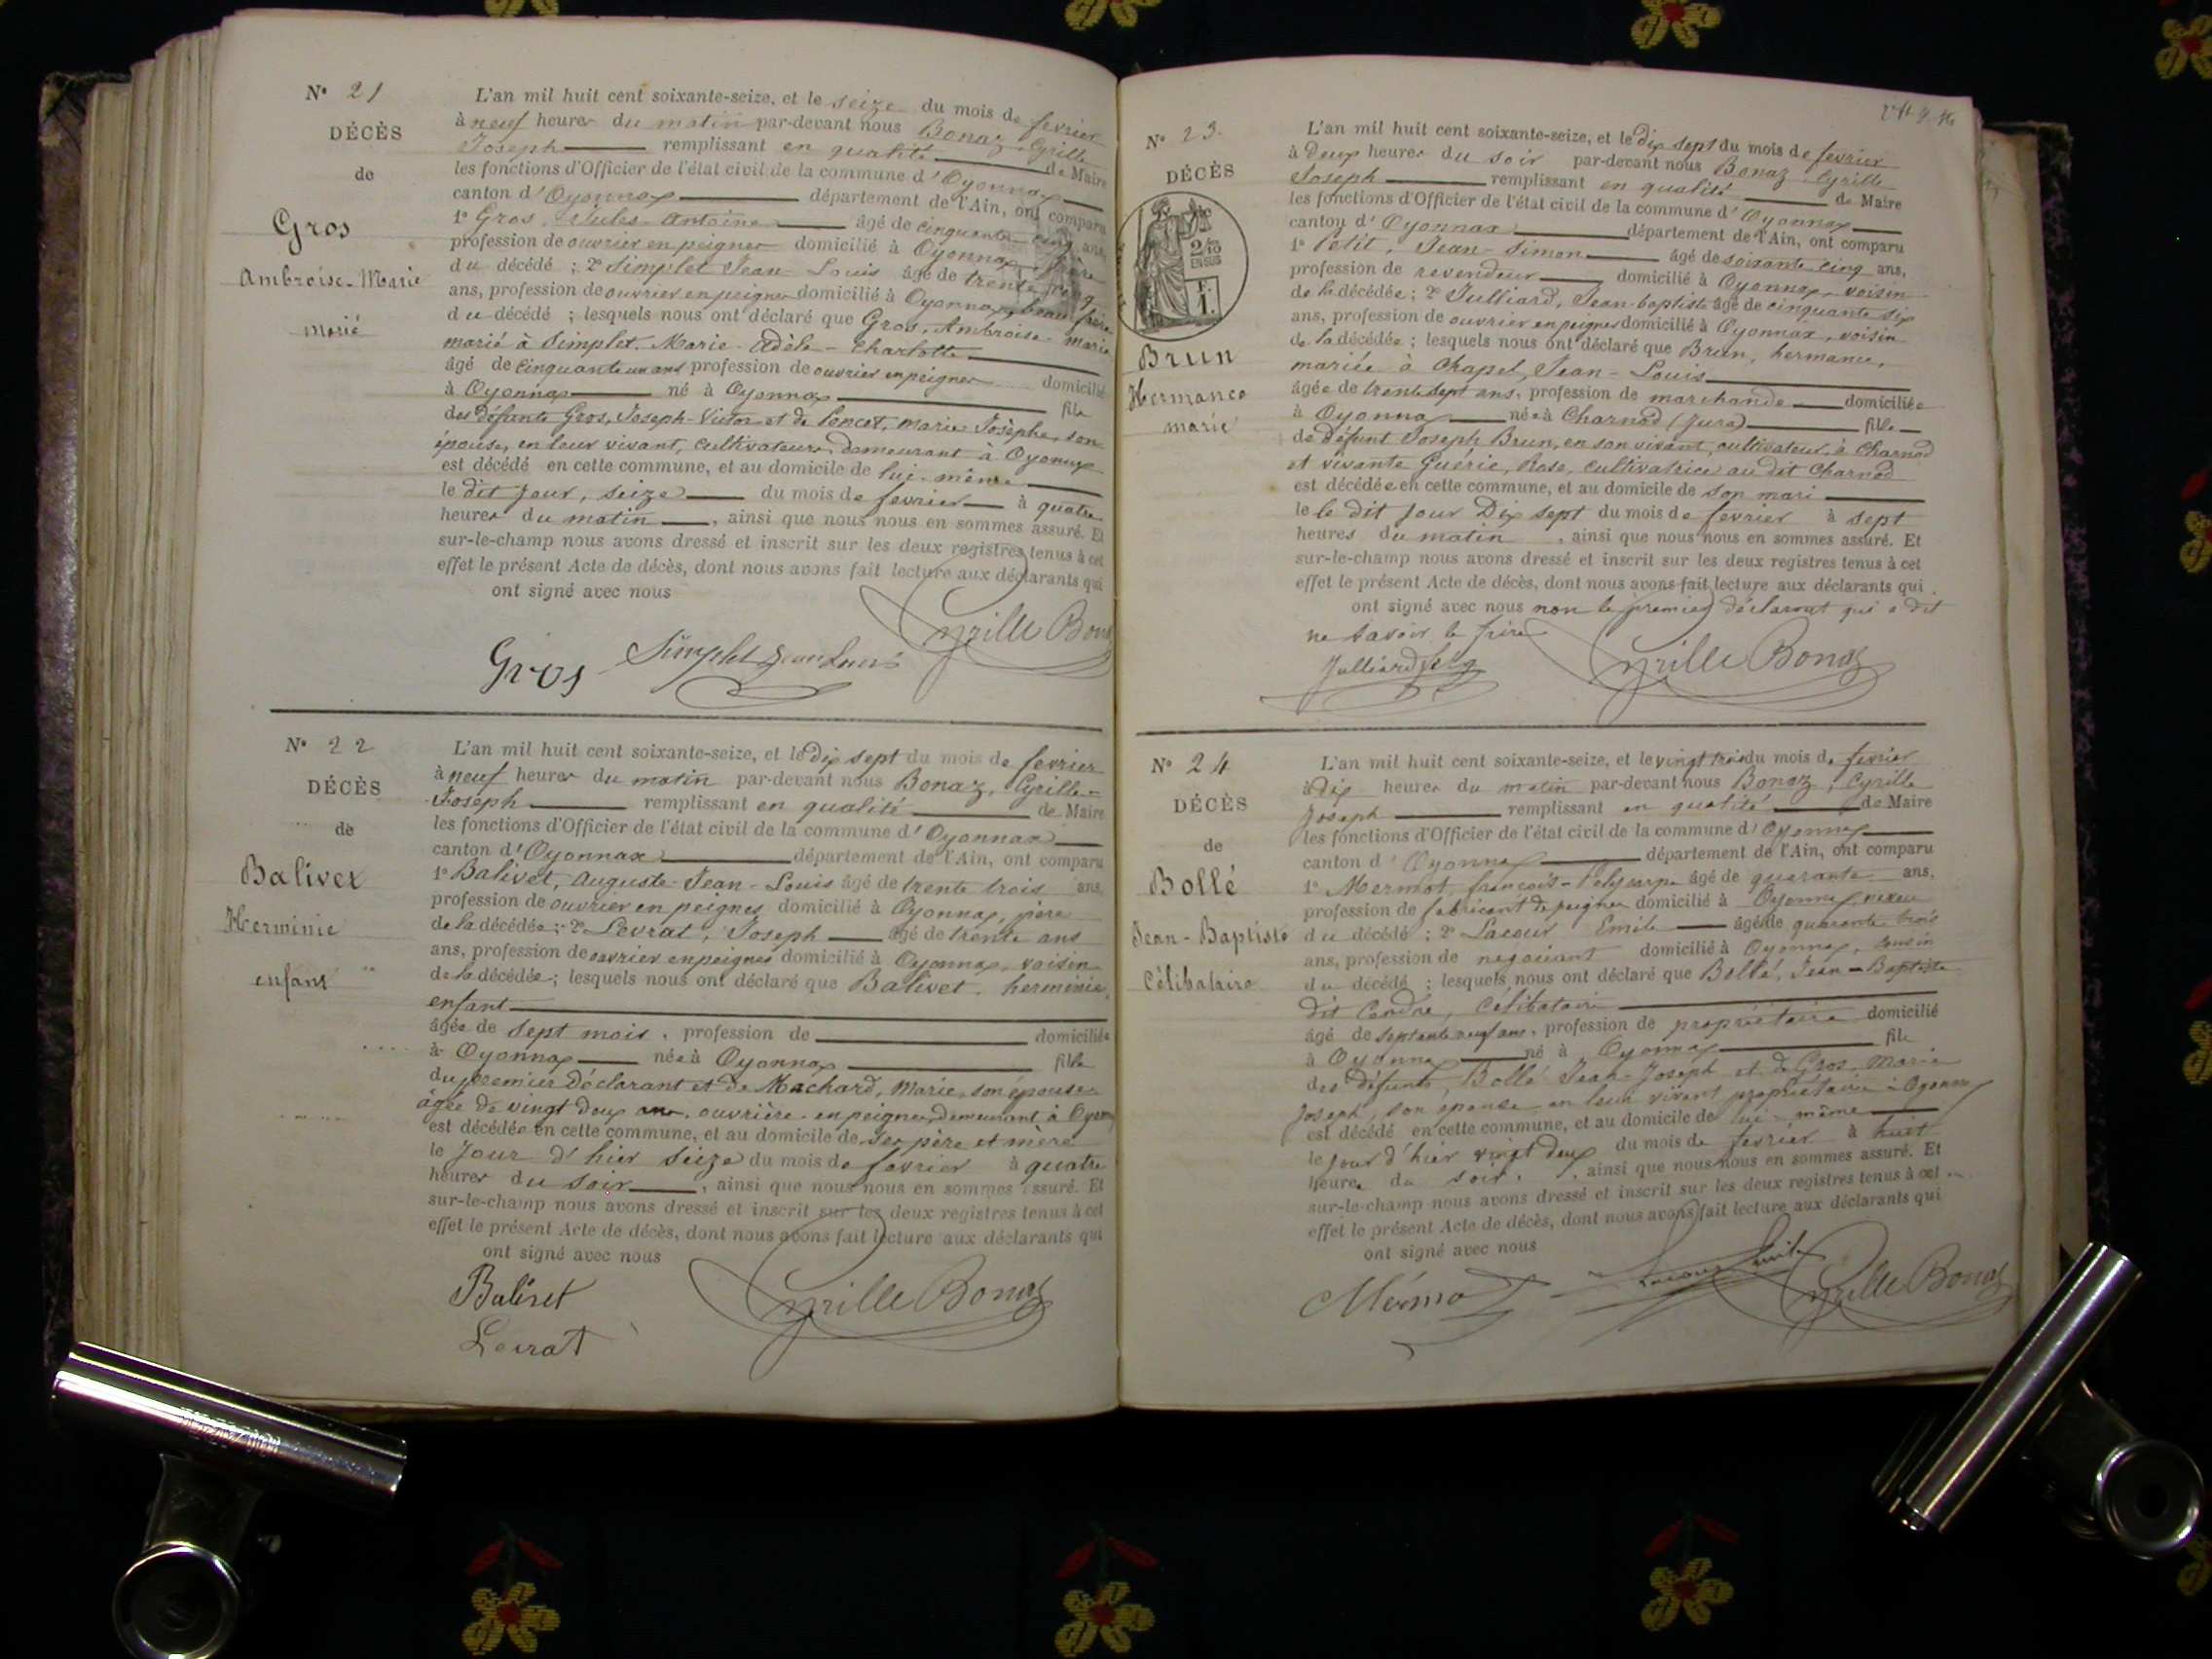 N° 21
DÉCÈS
de
Gros
Ambroise-Marie
marié
L'an mil huit cent soixante-seize, et le seize du mois de fevrier
à neuf heures du matin par-devant nous Bonaz, Cyrille
Joseph remplissant en qualité de Maire
les fonctions d'Officier de l'état civil de la commune d'Oyonnax
canton d'Oyonnax département de l'Ain, ont comparu
1° Gros, Jules-Antoine âgé de cinquante-cinq ans,
profession de ouvrier en peignes domicilié à Oyonnax, frère
du décédé ; 2° Simplet Jean-Louis âgé de trente cinq
ans, profession de ouvrier en peignes domicilié à Oyonnax, beau frère
du décédé ; lesquels nous ont déclaré que Gros, Ambroise-Marie
marié à Simplet, Marie-Adèle-Charlotte
âgé de cinquante un ans profession de ouvrier en peignes domicilié
à Oyonnax né à Oyonnax fils
des défunts Gros, Joseph-Victor et de Poncet, Marie Josèphe, son
épouse, en leur vivant, cultivateurs demeurant à Oyonnax
est décédé en cette commune, et au domicile de lui-même
le dit jour, seize du mois de fevrier à quatre
heures du matin, ainsi que nous nous en sommes assuré. Et
sur-le-champ nous avons dressé et inscrit sur les deux registres tenus à cet
effet le présent Acte de décès, dont nous avons fait lecture aux déclarants qui
ont signé avec nous
Gros Simplet Jean Louis Cyrille Bonaz
N° 22
DÉCÈS
de
Balivet
Herminie
enfant
L'an mil huit cent soixante-seize, et le dix sept du mois de fevrier
à neuf heures du matin par-devant nous Bonaz, Cyrille
Joseph remplissant en qualité de Maire
les fonctions d'Officier de l'état civil de la commune d'Oyonnax
canton d'Oyonnax département de l'Ain, ont comparu
1° Balivet, Auguste-Jean-Louis âgé de trente trois ans,
profession de ouvrier en peignes domicilié à Oyonnax, père
de la décédée ; 2° Levrat, Joseph âgé de trente ans
ans, profession de ouvrier en peignes domicilié à Oyonnax, voisin
de la décédée ; lesquels nous ont déclaré que Balivet, herminie,
enfant
âgée de sept mois, profession de domiciliée
à Oyonnax née à Oyonnax fille
du premier Déclarant et de Machard, Marie, son épouse
âgée de vingt deux ans, ouvrière en peignes, demeurant à Oyonnax
est décédée en cette commune, et au domicile de ses père et mère
le jour d'hier seize du mois de fevrier à quatre
heures du soir, ainsi que nous nous en sommes assuré. Et
sur-le-champ nous avons dressé et inscrit sur les deux registres tenus à cet
effet le présent Acte de décès, dont nous avons fait lecture aux déclarants qui
ont signé avec nous
Balivet Cyrille Bonaz
Levrat
N° 23
DÉCÈS
2/10
EN SUS
F.
1.
Brun
Hermance
marié
L'an mil huit cent soixante-seize, et le dix sept du mois de fevrier
à deux heures du soir par-devant nous Bonaz Cyrille
Joseph remplissant en qualité de Maire
les fonctions d'Officier de l'état civil de la commune d'Oyonnax
canton d'Oyonnax département de l'Ain, ont comparu
1° Petit, Jean-Simon âgé de soixante-cinq ans,
profession de revendeur domicilié à Oyonnax, voisin
de la décédée ; 2° Julliard, Jean-baptiste âgé de cinquante six
ans, profession de ouvrier en peignes domicilié à Oyonnax, voisin
de la décédée ; lesquels nous ont déclaré que Brun, hermance,
mariée à Chapel, Jean-Louis
âgée de trente sept ans, profession de marchande domiciliée
à Oyonnax née à Charnod (Jura) fille
de défunt Joseph Brun, en son vivant, cultivateur, à Charnod
et vivante Guérie, Rose, cultivatrice au dit Charnod
est décédée en cette commune, et au domicile de son mari
le le dit jour Dix sept du mois de fevrier à sept
heures du matin, ainsi que nous nous en sommes assuré. Et
sur-le-champ nous avons dressé et inscrit sur les deux registres tenus à cet
effet le présent Acte de décès, dont nous avons fait lecture aux déclarants qui
ont signé avec nous non le premier déclarant qui a dit
ne savoir le faire
Julliard Cyrille Bonaz
N° 24
DÉCÈS
de
Bollé
Jean-Baptiste
Célibataire
L'an mil huit cent soixante-seize, et le vingt trois du mois de fevrier
à dix heures du matin par-devant nous Bonaz, Cyrille
Joseph remplissant en qualité de Maire
les fonctions d'Officier de l'état civil de la commune d'Oyonnax
canton d'Oyonnax département de l'Ain, ont comparu
1° Mermot, françois-Polycarpe âgé de quarante ans,
profession de fabricant de peignes domicilié à Oyonnax, neveu
du décédé ; 2° Lacour Emile âgé de quarante trois
ans, profession de negociant domicilié à Oyonnax, cousin
du décédé ; lesquels nous ont déclaré que Bollé, Jean-Baptiste
dit célibataire
âgé de septante neuf ans, profession de propriétaire domicilié
à Oyonnax né à Oyonnax fils
des défunts, Bollé Jean-Joseph et de Gros, Marie
Joseph, son épouse en leur vivant propriétaire à Oyonnax
est décédé en cette commune, et au domicile de lui-même
le jour d'hier vingt deux du mois de fevrier à huit
heures du soir, ainsi que nous nous en sommes assuré. Et
sur-le-champ nous avons dressé et inscrit sur les deux registres tenus à cet
effet le présent Acte de décès, dont nous avons fait lecture aux déclarants qui
ont signé avec nous
Mermot Lacour Emile Cyrille Bonaz